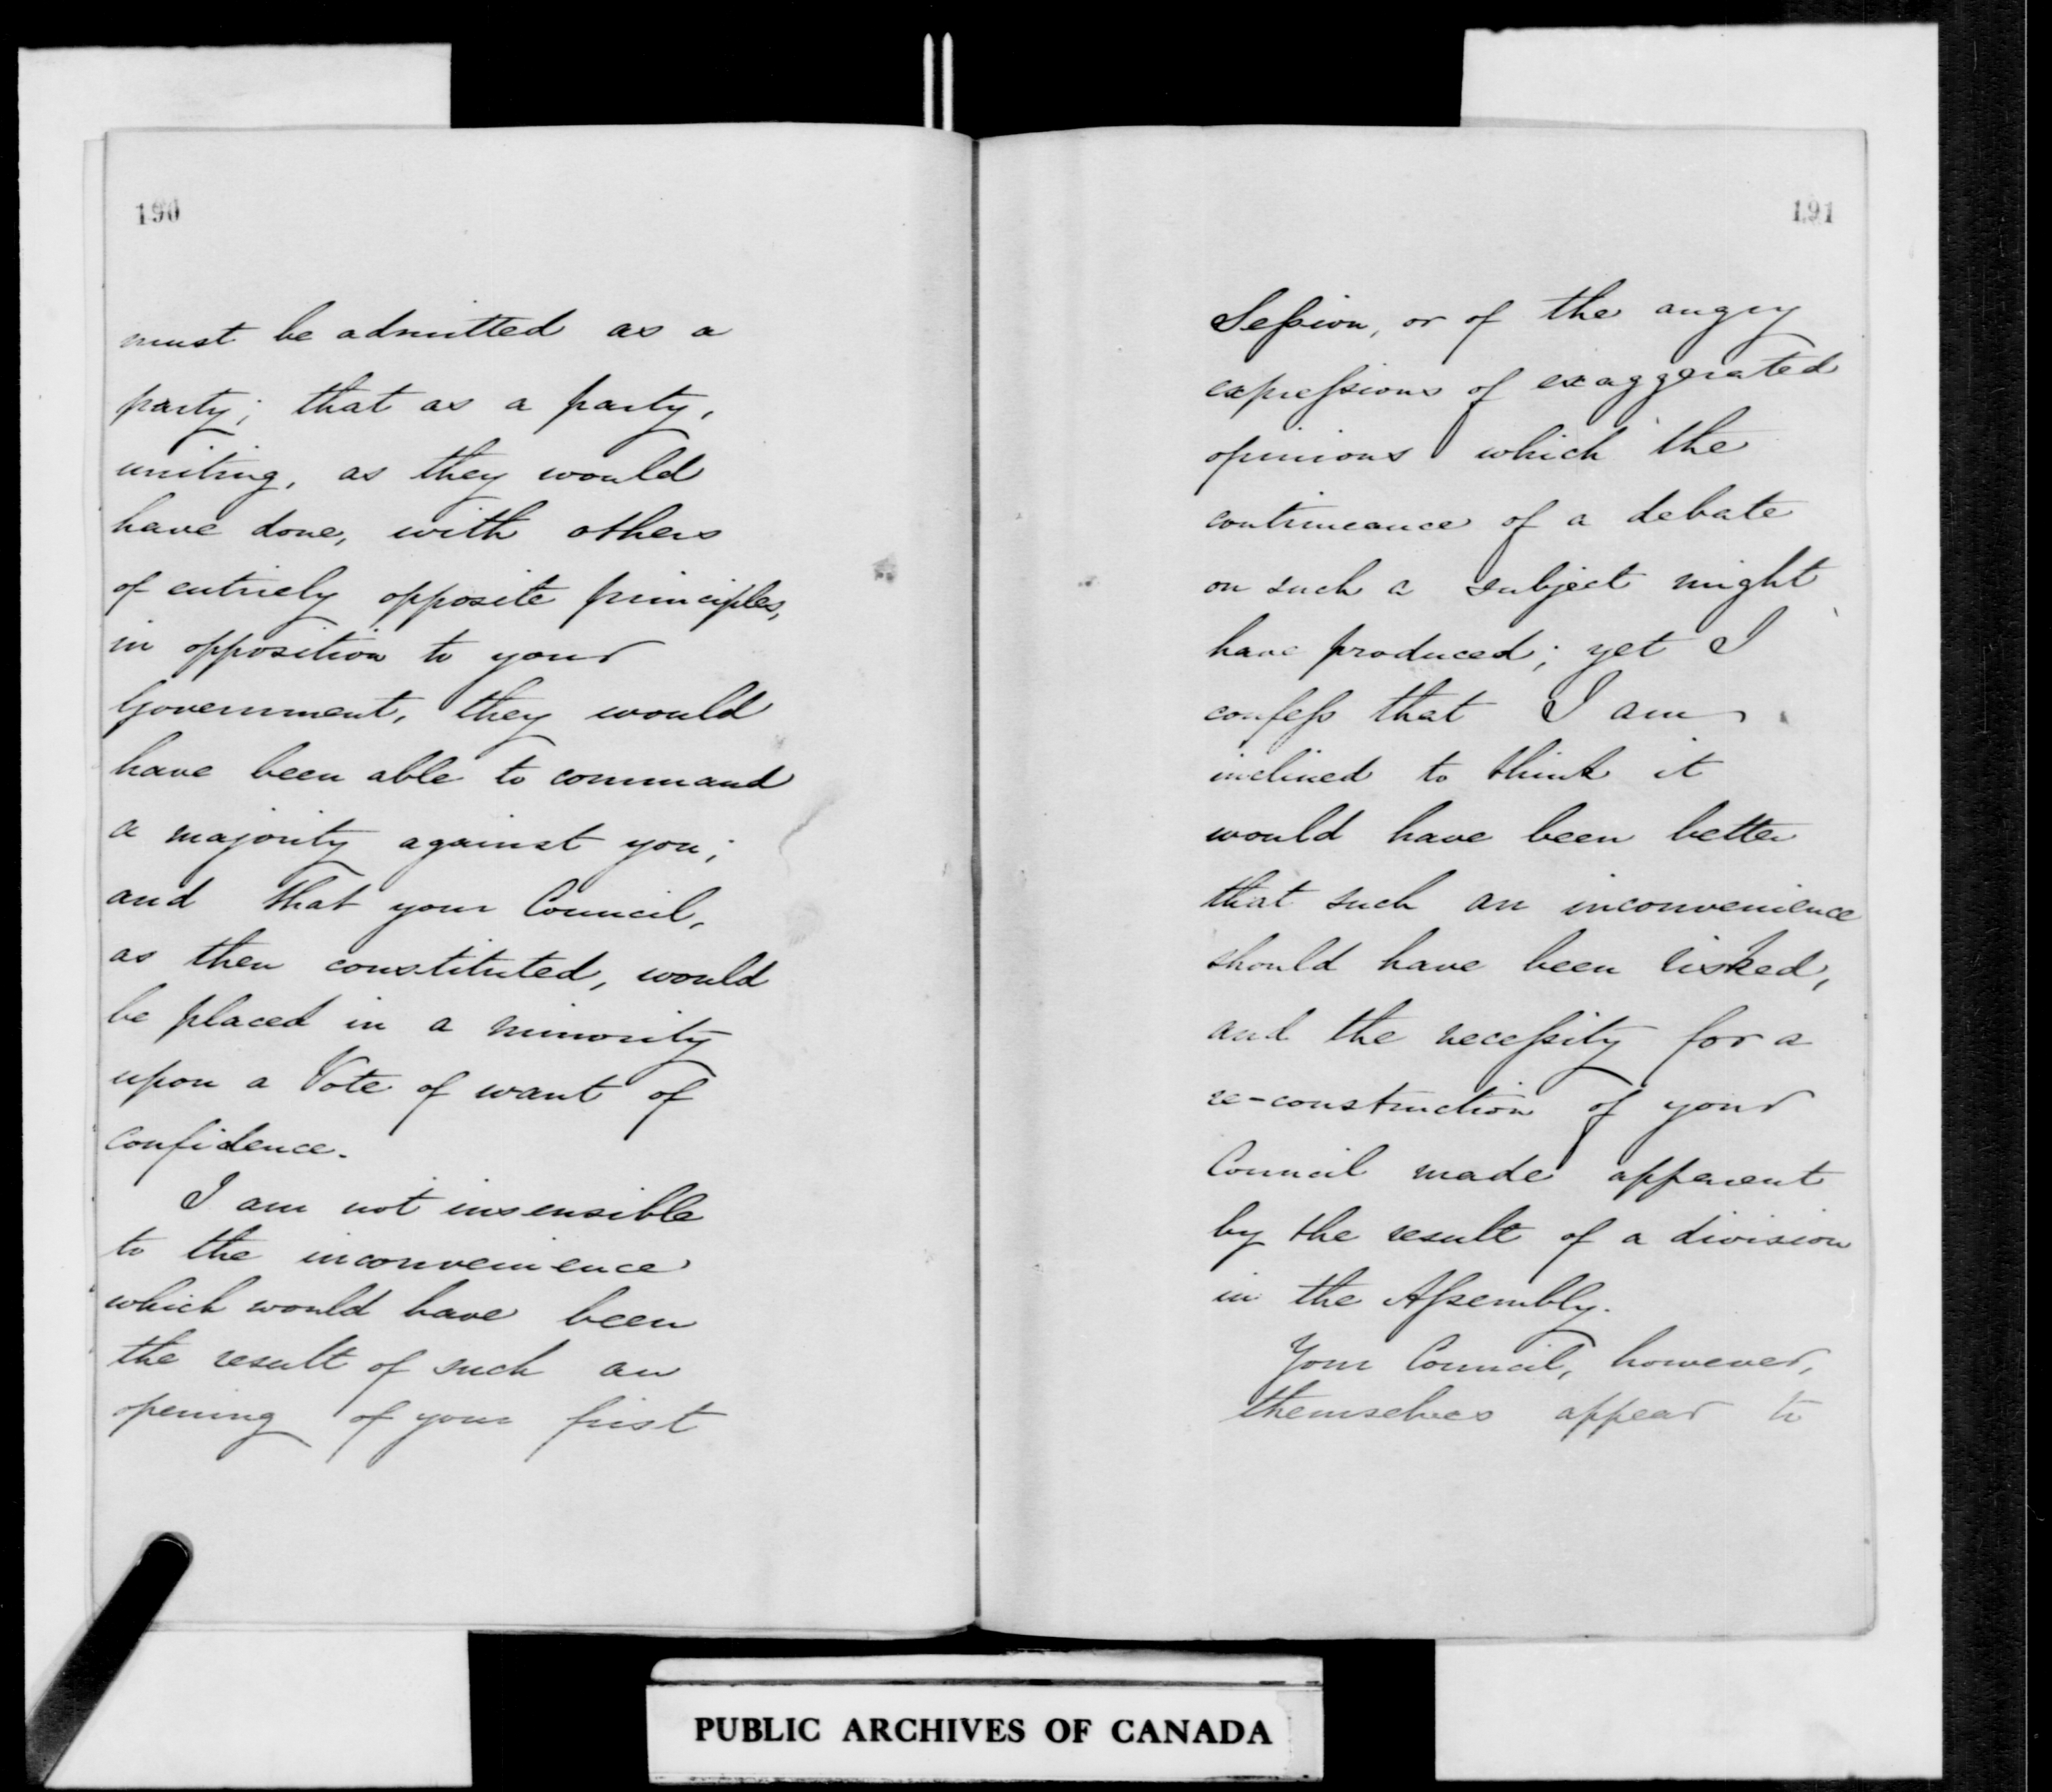 190
must be admitted as a
party; that as a party,
uniting, as they would
have done, with others
of entirely opposite principles,
in opposition to your
Government, they would
have been able to command
a majority against you;
and that your Council,
as then constituted, would
be placed in a minority
upon a Vote of want of
confidence.
I am not insensible
to the inconvenience
which would have been
the result of such an
opening of your first
191
Session, or of the angry
expressions of exaggerated
opinions which the
continuance of a debate
on such a subject might
have produced; yet I
confess that I am
inclined to think it
would have been better
that such an inconvenience
should have been risked,
and the necessity for a
re-construction of your
Council made apparent
by the result of a division
in the Assembly.
Your Council, however,
themselves appear to
PUBLIC ARCHIVES OF CANADA